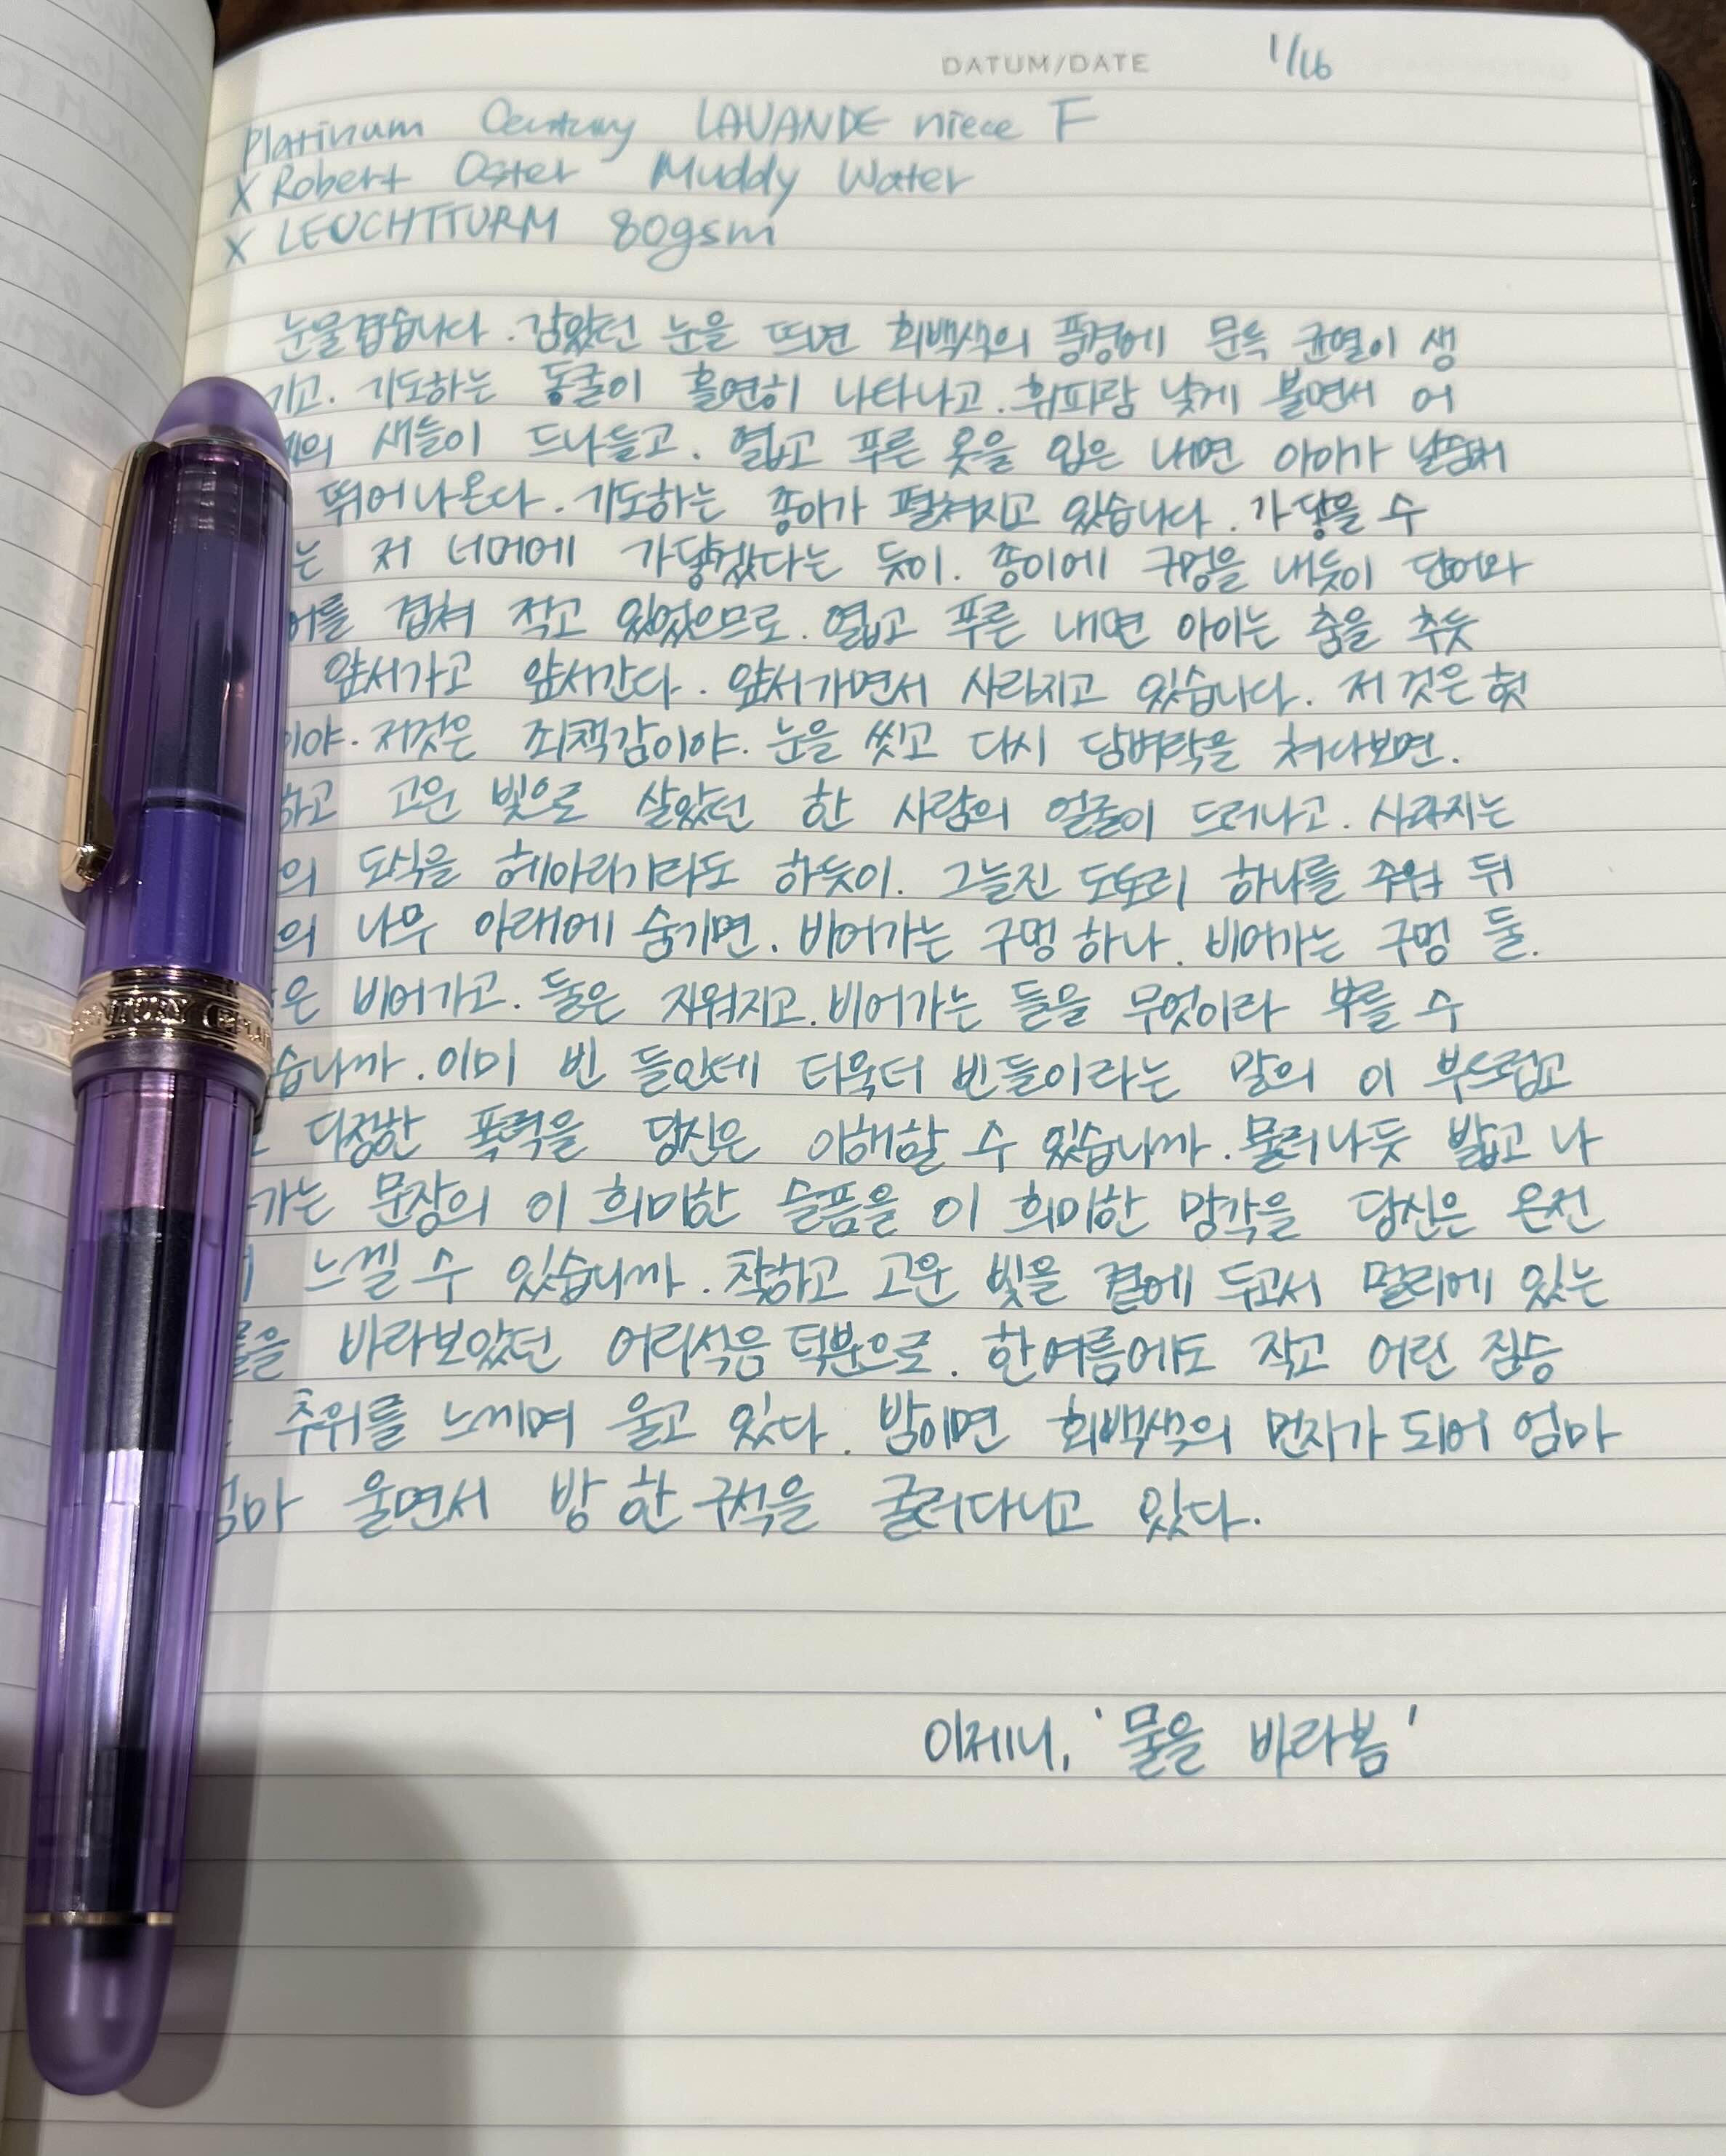 DATUM/DATE 1/16
Platinum Century LAVANDE niece F
X Robert Oster Muddy Water
X LEUCHTTURM 80gsm
눈물겹습니다. 감았던 눈을 뜨면 회백색의 풍경에 문득 균열이 생
기고. 기도하는 동굴이 홀연히 나타나고. 휘파람 낮게 불면서 어
새들이 드나들고. 엷고 푸른 옷을 입은 내면 아이가
뛰어나온다. 기도하는 종이가 펼쳐지고 있습니다. 가닿을 수
는 저 너머에 가닿겠다는 듯이. 종이에 구멍을 내듯이 단어와
어를 겹쳐 적고 있었으므로. 엷고 푸른 내면 아이는 춤을 추듯
앞서가고 앞서간다. 앞서가면서 사라지고 있습니다. 저것은 헛
이야. 저것은 죄책감이야. 눈을 씻고 다시 담벼락을 쳐다보면.
하고 고운 빛으로 살았던 한 사람의 얼굴이 드러나고. 사라지는
의 도식을 헤아리기라도 하듯이. 그늘진 도토리 하나를 주워 뒤
의 나무 아래에 숨기면. 비어가는 구멍 하나. 비어가는 구멍 둘.
은 비어가고. 둘은 지워지고. 비어가는 들을 무엇이라 부를 수
습니까. 이미 빈 들인데 더욱더 빈들이라는 말의 이 부드럽고
다정한 폭력을 당신은 이해할 수 있습니까. 물러나듯 밟고 나
가는 문장의 이 희미한 슬픔을 이 희미한 망각을 당신은 온전
느낄 수 있습니까. 착하고 고운 빛을 곁에 두고서 멀리에 있는
을 바라보았던 어리석음 덕분으로. 한여름에도 작고 어린 짐승
추위를 느끼며 울고 있다. 밤이면 회백색의 먼지가 되어 엄마
엄마 울면서 방 한구석을 굴러다니고 있다.
이제니, '물을 바라봄'